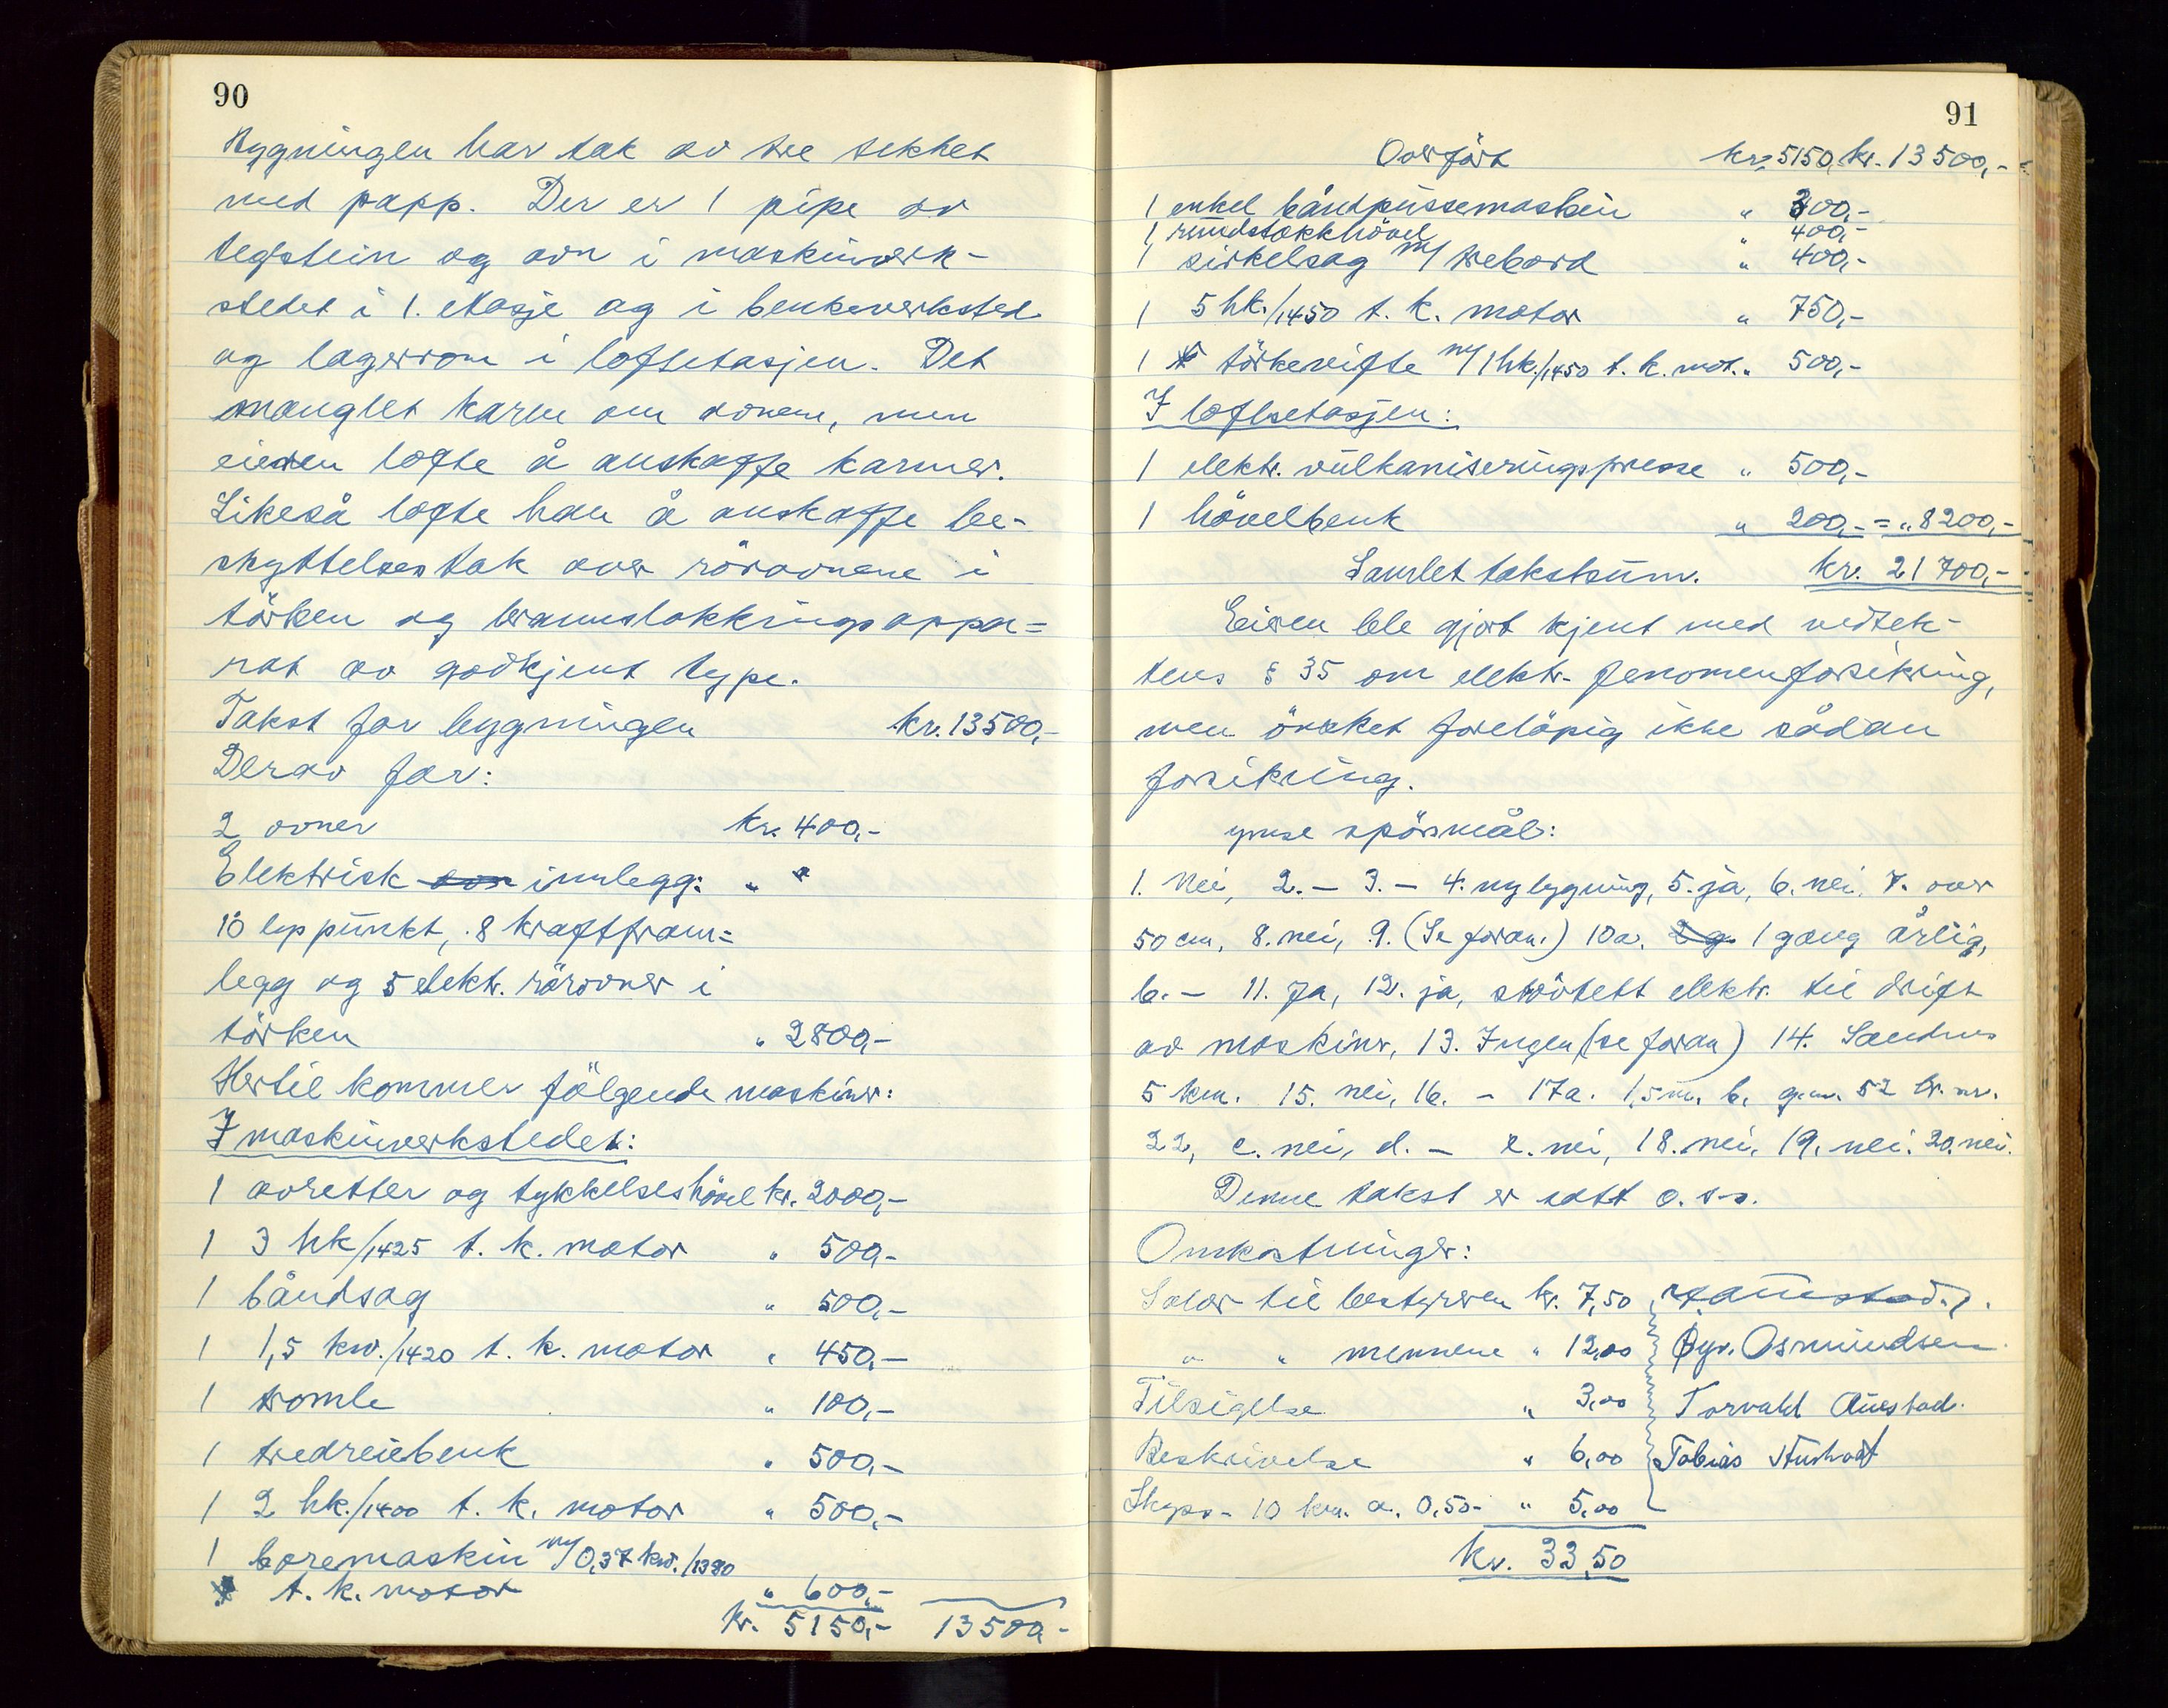 90
Bygningen har tak av tre tekket
med papp. Der er 1 pipe av
teglstein og ovn i maskinverk-
stedet i 1. etasje og i benkeverksted
og lagerrom i loftsetasjen. Det
manglet karm om ovnene, men
eieren lofte å anskaffe karmer.
Likeså lofte han å anskaffe be-
skyttelsestak over rörovnene i
törken og brannslokkingsappa=
rat av godkjent type.
Takst for bygningen kr. 13500,-
Derav for:
2 ovner kr. 400,-
Elektrisk innlegg: " "
10 lyspunkt, 8 kraftfram=
legg og 5 elektr. rörovner i
törken " 2800,-
Hertil kommer fölgende maskiner:
I maskinverkstedet:
1 avretter og tykkelseshövel kr. 2000,-
1 3 hk/1425 t. k. motor " 500,-
1 båndsag " 500,-
1 1,5 kw./1420 t. k. motor " 450,-
1 tromle " 100,-
1 tredreiebenk " 500,-
1 2 hk./1400 t. k. motor " 500,-
1 boremaskin m/0,37 kw./1380
t. k. motor " 600,-
kr. 5150,- 13500,-
91
Overfört kr. 5150,- kr. 13500,-
1 enkel båndpussemaskin " 300,-
1 rundstokkhövel " 400,-
1 sirkelsag m/ trebord " 400,-
1 5 hk./1450 t. k. motor " 750,-
1 törkevifte m/ 1 hk./1450 t. k. mot. " 500,-
I loftsetasjen:
1 elektr. vulkaniseringspresse " 500,-
1 hövelbenk " 200,- = " 8200,-
Samlet takstsum. kr. 21700,-
Eieren ble gjort kjent med vedtek-
tens § 35 om elektr. fenomenforsikring,
men önsket forelöpig ikke sådan
forsikring.
ymse spörsmål:
1. Nei, 2. - 3. - 4. nybygning, 5. ja, 6. nei, 7. over
50 cm, 8. nei, 9. (Se foran.) 10a. 1 gang årlig,
b. - 11. Ja, 12. ja, stövtett elektr. til drift
av maskiner, 13. Ingen (se foran) 14. Sandnes
5 km. 15. nei, 16. - 17a. 1,5 m, b. g.nr. 52 br. nr.
22, c. nei, d. - e. nei, 18. nei, 19. nei. 20. nei.
Denne takst er satt o. s. v.
Omkostninger:
Salær til bestyreren kr. 7,50
" " mennene " 12,00 Øyv. Osmundsen
Tilsigelse " 3,00 Torvald Auestad.
Beskrivelse " 6,00 Tobias
Skyss - 10 km. a. 0,50 - " 5,00
kr. 33,50